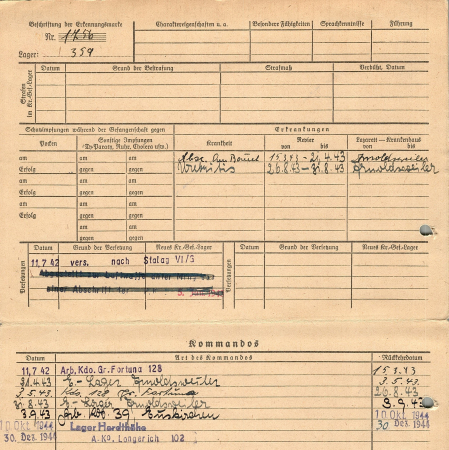 Beschriftung der Erkennungsmarke
Nr. 1756
Lager: 359
Charaktereigenschaften u. a.
Besondere Fähigkeiten
Sprachkenntnisse
Führung
Strafen im Kr.-Gef.-Lager
Datum
Grund der Bestrafung
Strafmaß
Verbüßt, Datum
Schutzimpfungen während der Gefangenschaft gegen
Erkrankungen
Pocken
Sonstige Impfungen
(Ty-Paraty, Ruhr, Cholera usw.)
Krankheit
Revier
von bis
Lazarett — Krankenhaus
von bis
am am
gegen
Absc. am 15.3.43 – 21.4.43 Arnoldsweiler
Erfolg am
gegen
26.8.43 – 31.8.43 Arnoldsweiler
am am
Erfolg gegen
am am
Erfolg gegen
am
gegen
Versetzungen
Datum
Grund der Versetzung
Neues Kr.-Gef.-Lager
Versetzungen
Datum
Grund der Versetzung
Neues Kr.-Gef.-Lager
11.7.42 vers. nach Stalag VI/G
einer Abschrift
Kommandos
Datum
Art des Kommandos
Rückkehrdatum
11.7.42 Arb. Kdo. Gr. Fortuna 128 15.3.43
31.4.43 E-Lager Arnoldsweiler 3.5.43
3.5.43 Kdo. 128 Gr. Fortuna 26.8.43
31.8.43 E-Lager Arnoldsweiler 3.9.43
3.9.43 Arb. Kdo. 39, Euskirchen 10. Okt. 1944
10. Okt. 1944 Lager Hardthöhe 30. Dez. 1944
30. Dez. 1944 A. Ko. Longerich 102